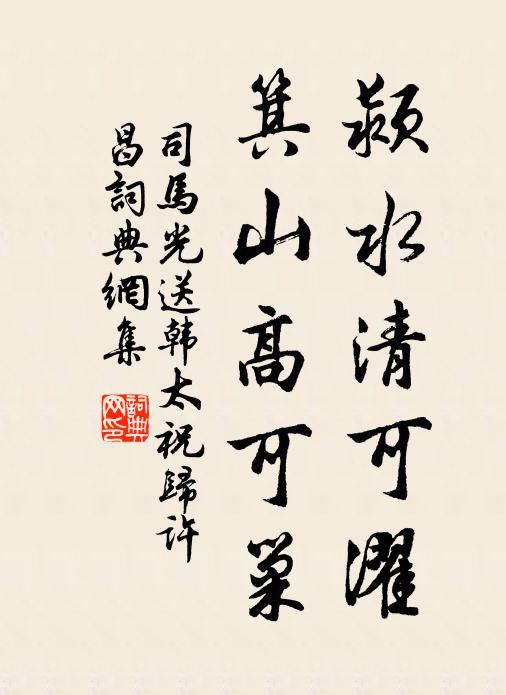 颍水清可濯
箕山高可巢
司馬光送韩太祝歸许
昌詞典網集
詞典
网印